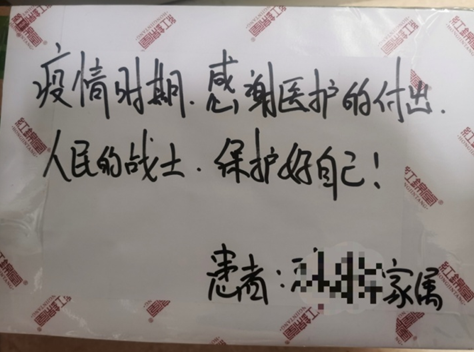 疫情时期.感谢医护的付出.
人民的战士.保护好自己!
患者:家属